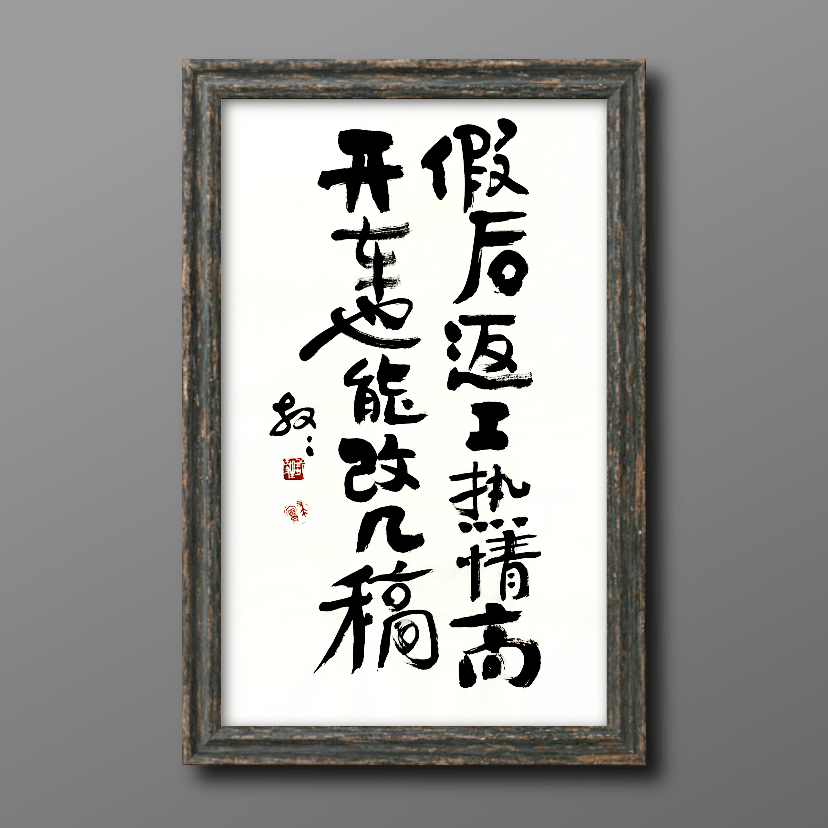 假后返工热情高
开车也能改几稿